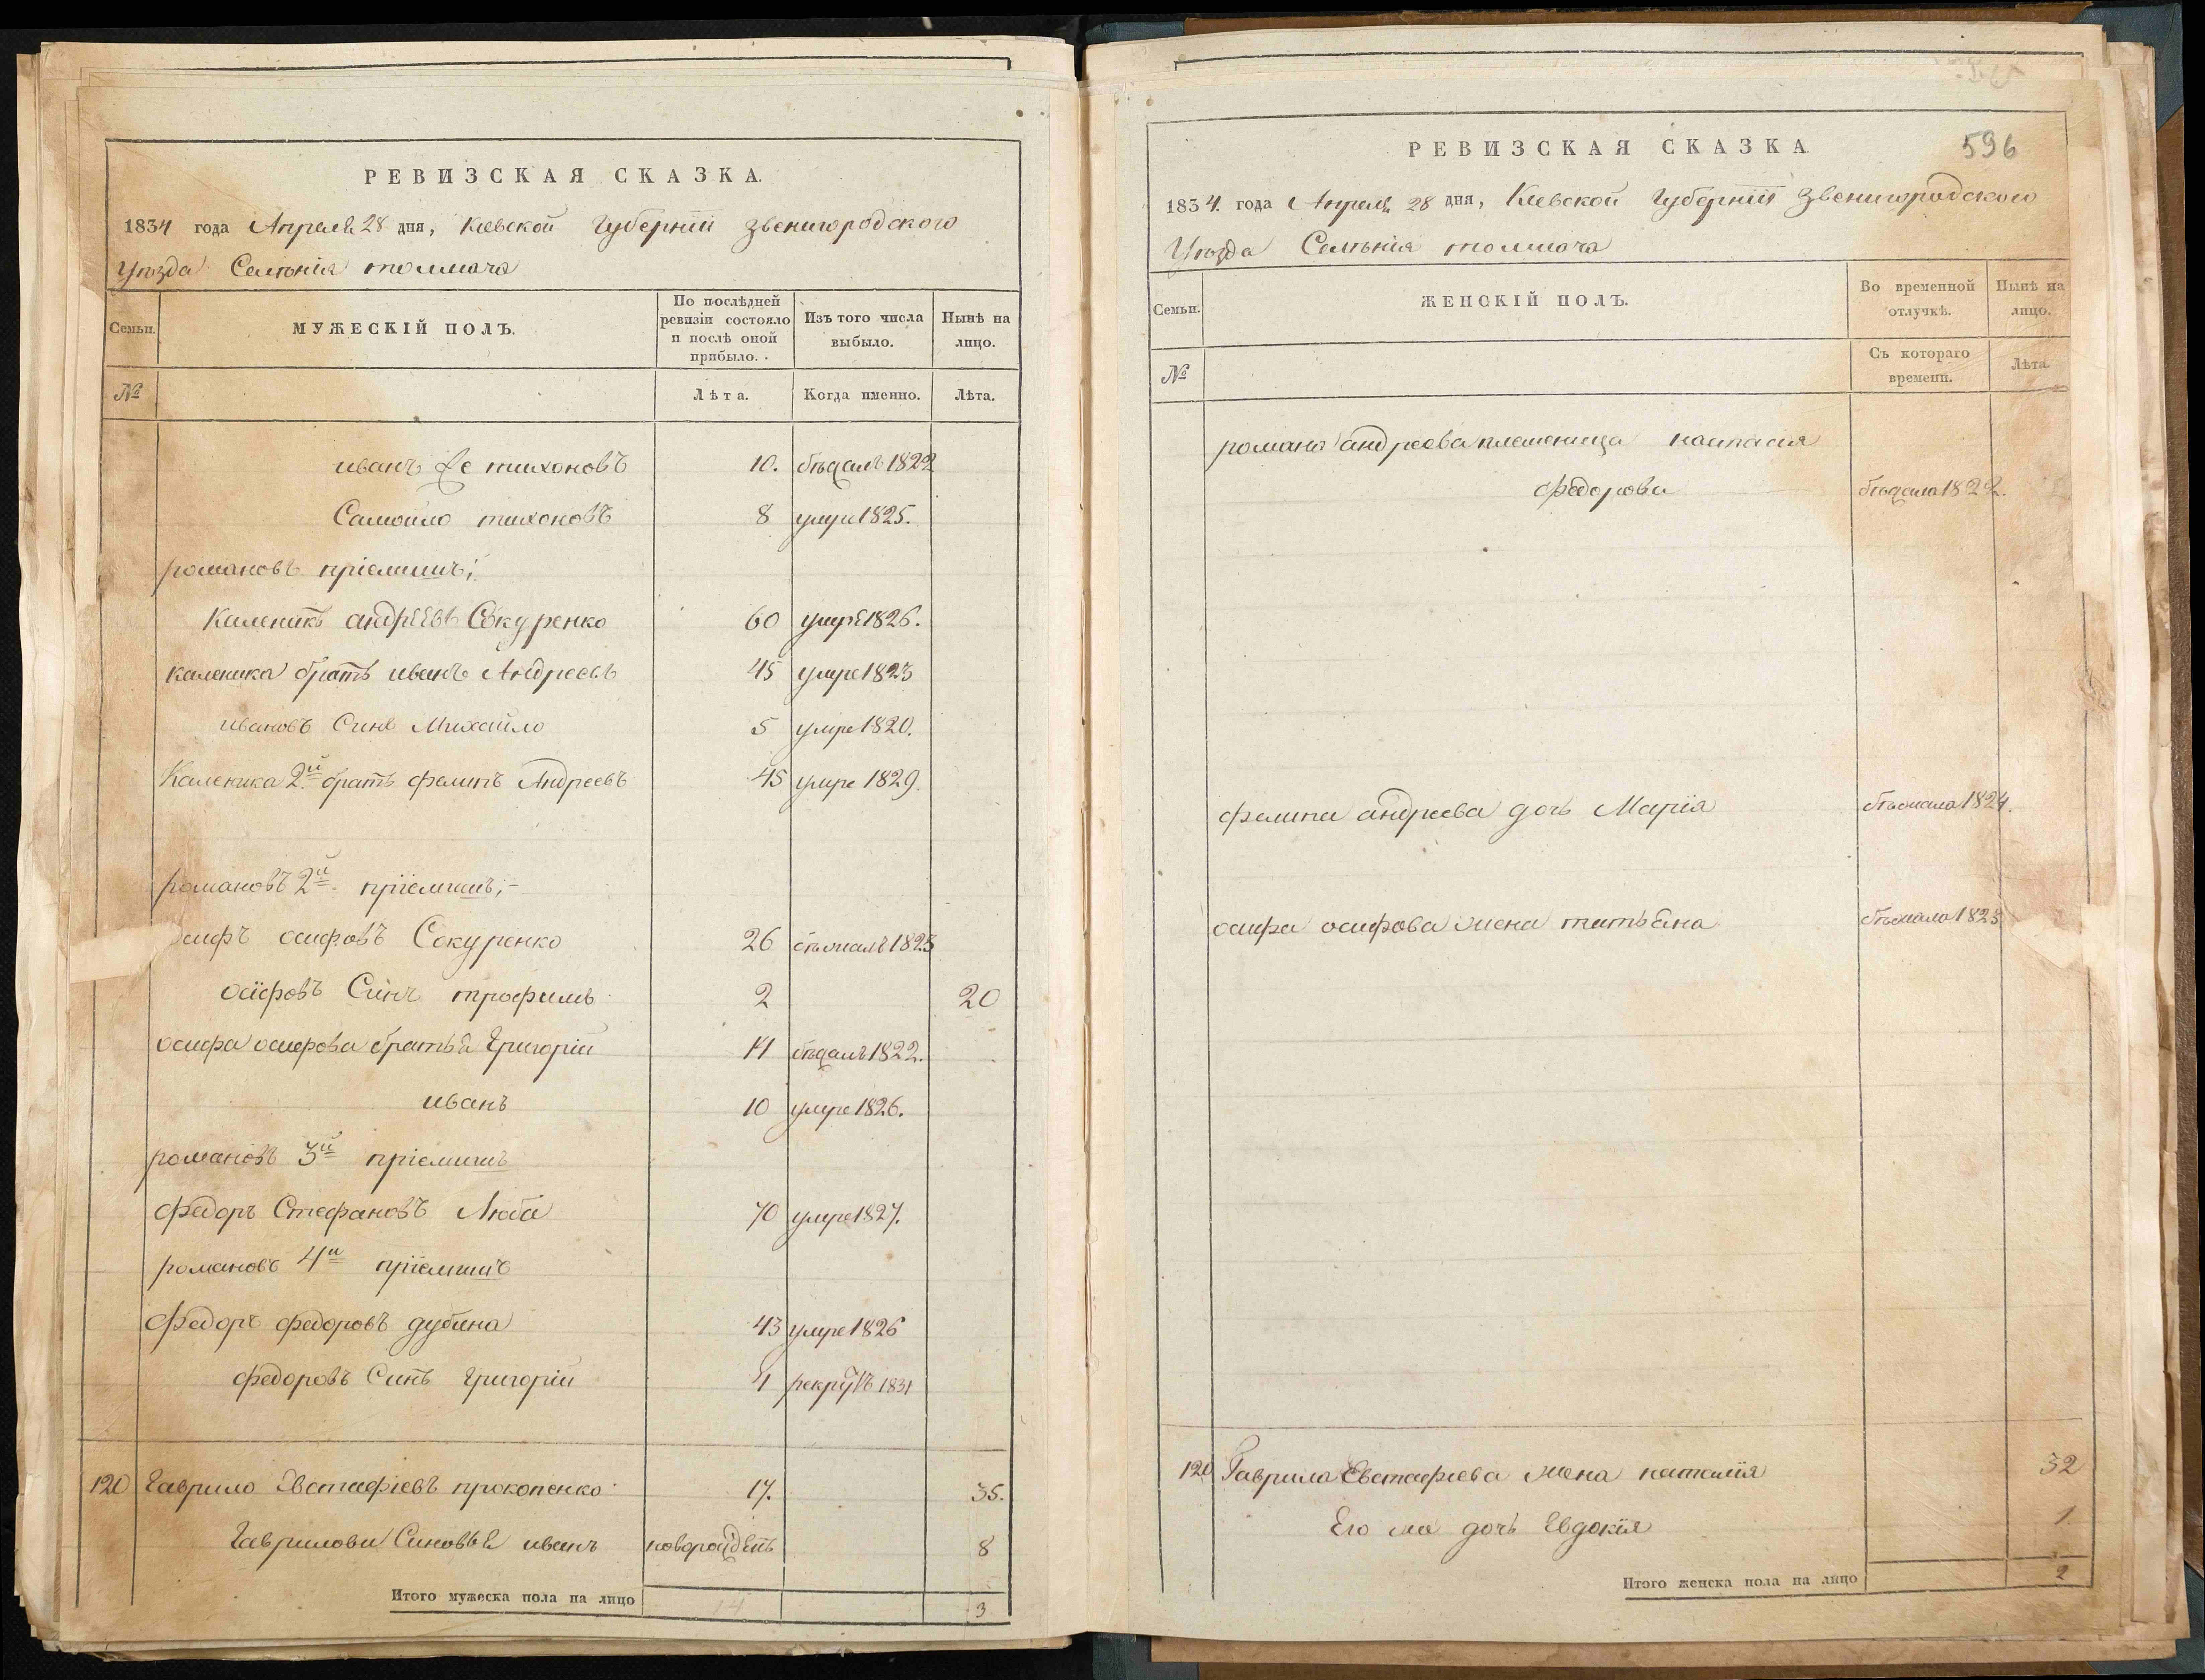 РЕВИЗСКАЯ СКАЗКА.
1834 года Апреля 28 дня, Кіевской Губерніи Звенигородского
Уѣзда Селѣнія толмача
Семьи. МУЖЕСКІЙ ПОЛЪ. По послѣдней ревизіи состояло и послѣ оной прибыло. Изъ того числа выбыло. Нынѣ на лицо.
№ Лѣта. Когда именно. Лѣта.
иванъ тихоновъ 10. бѣжалъ 1822
Самойло тихоновъ 8 умре 1825.
романовъ пріемишъ;
Каленикъ андрѣевъ Сокуренко 60 умре 1826.
каленика братъ иванъ Андреевъ 45 умре 1823
ивановъ Синъ Михайло 5 умре 1820.
Каленика 2й братъ филипъ Андреевъ 45 умре 1829.
романовъ 2й пріемишъ;-
осифъ осифовъ Сокуренко 26 бѣжалъ 1823
осифовъ Синъ трофимъ 2 20
осифа осифова братья Григорій 14 бѣжалъ 1822.
иванъ 10 умре 1826.
романовъ 3й пріемишъ
федоръ Стефановъ Люба 70 умре 1827.
романовъ 4й пріемишъ
Федоръ федоровъ дубина 43 умре 1826
федоровъ Синъ Григорій рекрутъ 1831
120 Гаврило Евстафіевъ прокопенко 17. 35.
Гаврилови Синовья иванъ новорожденъ 8
Итого мужеска пола на лицо 14 3
596
РЕВИЗСКАЯ СКАЗКА
1834. года Апреля 28 дня, Кіевской Губерніи Звенигородского
Уѣзда Селѣнія толмача
Семьи. ЖЕНСКІЙ ПОЛЪ. Во временной отлучкѣ. Нынѣ на лицо.
№ Съ котораго времени. Лѣта.
романа андреева племеница настасія
федорова бѣжала 1822.
филипа андреева дочь Марія бѣжала 1824.
осифа осифова жена татьяна бѣжала 1823
120 Гаврила Евстафіева жена наталія 32
Его жа дочь Евдокія 1
Итого женска пола на лицо 2